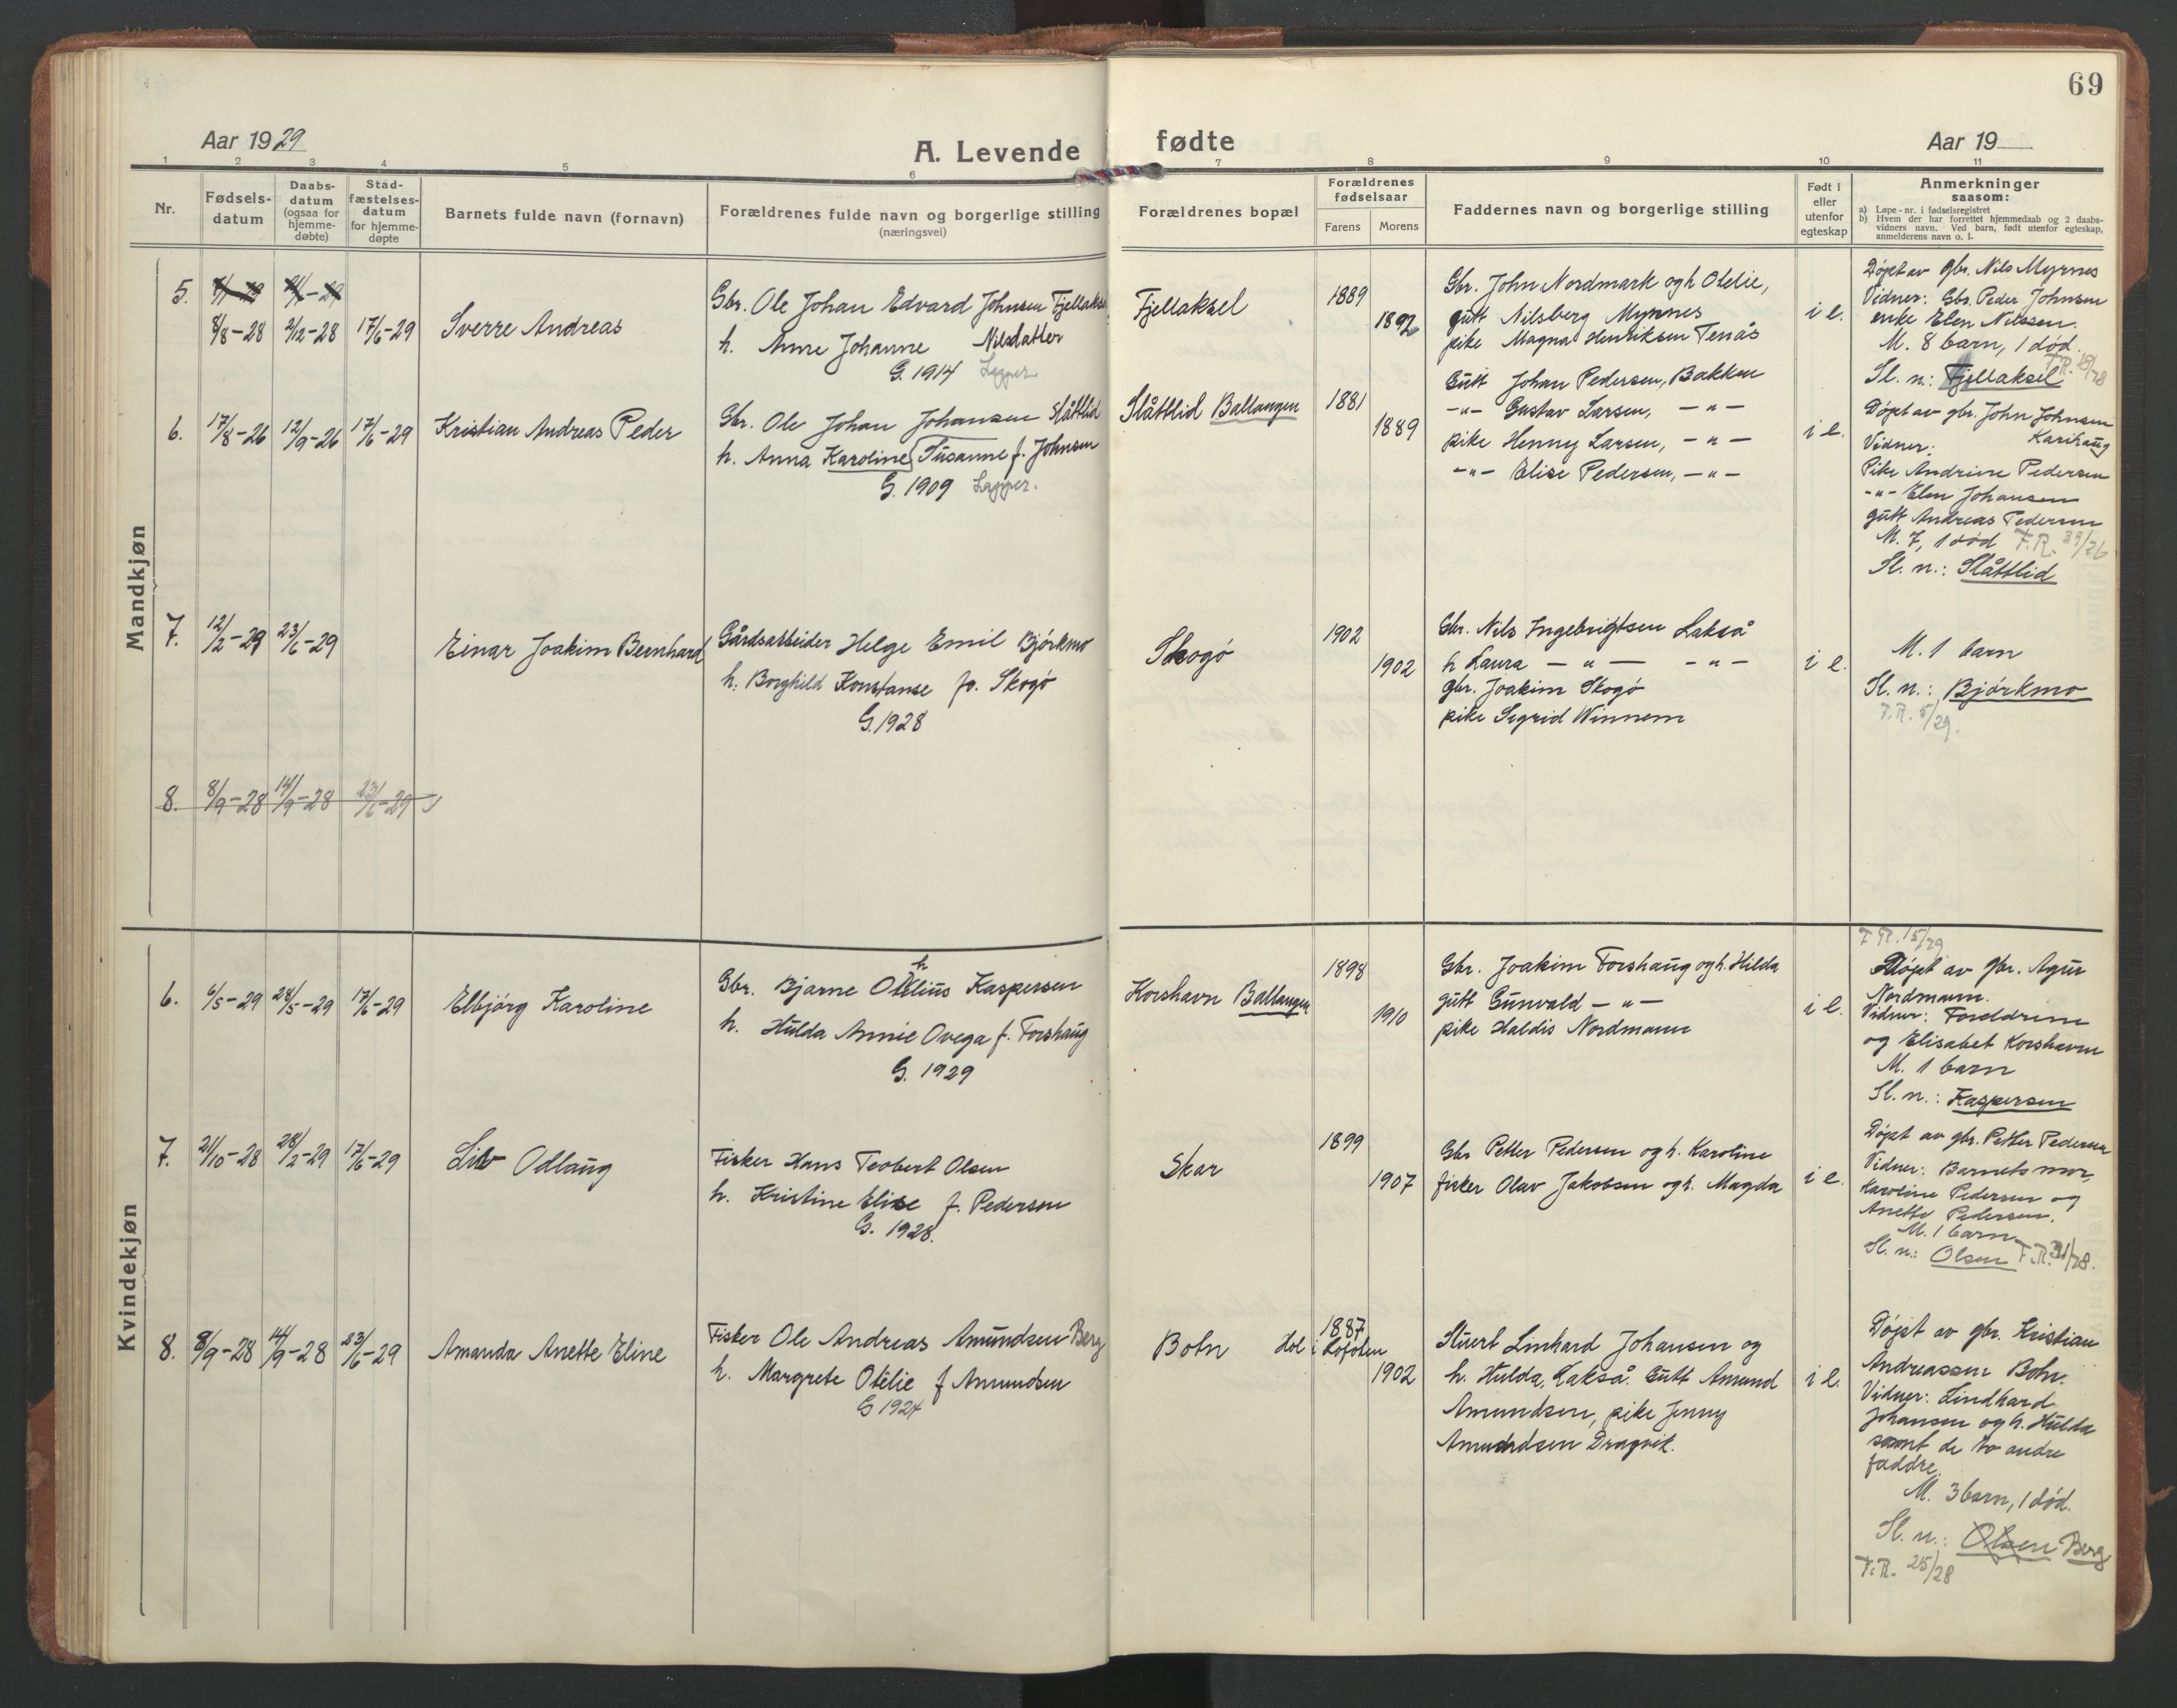 69
Aar 1929
A. Levende
fødte
Aar 19
1 2 3 4 5 6 7 8 9 10 11
Nr.
Fødsels-
datum
Daabs-
datum
(ogsaa for
hjemme-
døbte)
Stad-
fæstelses-
datum
for hjemme-
døpte
Barnets fulde navn (fornavn)
Forældrenes fulde navn og borgerlige stilling
(næringsvei)
Forældrenes bopæl
Forældrenes
fødselsaar
Farens Morens
Faddernes navn og borgerlige stilling
Født i
eller
utenfor
egteskap
Anmerkninger
saasom:
a) Løpe-nr. i fødselsregistret
b) Hvem der har forrettet hjemmedaab og 2 daabs-
vidners navn. Ved barn, født utenfor egteskap,
anmelderens navn o. l.
Mandkjøn
5.
8/8-28 2/12-28 17/6-29
Sverre Andreas
Gbr. Ole Johan Edvard Johnsen Fjellaksel
h. Anne Johanne Nilsdatter
G. 1914 Lapper.
Fjellaksel
1889
1892
Gbr. John Nordmark og h Otelie,
gutt Nilsberg Myrnes
pike Magna Henriksen Tenås
i e.
Døpt av gbr. Nils Myrnes
Vidner: Gbr. Peder Johnsen
enke Elen Nilssen.
M. 8 barn, 1 død.
F.R. 19/28
Sl. n.: Fjellaksel
6. 17/8-26 12/9-26 17/6-29
Kristian Andreas Peder
Gbr. Ole Johan Johansen Slåttlid
h. Anna Karoline Susanne f. Johnsen
G. 1909 Lapper.
Slåttlid Ballangen
1881
1889
Gutt Johan Pedersen, Bakken
-"- Gustav Larsen, -"-
pike Henny Larsen, -"-
-"- Elise Pedersen, -"-
i e.
Døpt av gbr. John Johnsen
Karihaug
Vidner:
Pike Andrine Pedersen
-"- Elen Johansen
gutt Andreas Pedersen
M. 7, 1 død F.R. 39/26
Sl. n.: Slåttlid
7. 12/2-29 23/6-29
Einar Joakim Bernhard
Gårdsarbeider Helge Emil Bjørkmo
h. Borghild Konstanse fø. Skogø
G. 1928
Skogø
1902
1902
Gbr. Nils Ingebrigtsen Lakså
h Laura -"- -"-
gbr. Joakim Skogø
pike Sigrid Winnem
i e.
M. 1 barn
Sl. n.: Bjørkmo
F.R. 5/29.
8. 8/9-28 14/9-28 23/6-29
Kvindekjøn
6. 6/5-29 28/5-29 17/6-29
Elbjørg Karoline
Gbr. Bjarne Othelius Kaspersen
h. Hulda Annie Ovega f. Forshaug
G. 1929
Korshavn Ballangen
1898
1910
Gbr. Joakim Forshaug og h. Hilda
gutt Gunvald -"-
pike Haldis Nordmann
i e.
F.R. 15/29
Døpt av gbr. Agur
Nordmann.
Vidner: Foreldrene
og Elisabet Korshavn
M. 1 barn
Sl. n.: Kaspersen
7. 21/10-28 28/2-29 17/6-29
Liv Odlaug
Fisker Hans Teobert Olsen
h. Kristine Elise f. Pedersen
G. 1928.
Skar
1899
1907
Gbr Petter Pedersen og h. Karoline
fisker Olav Jakobsen og h. Magda
i e.
Døpt av gbr. Petter Pedersen
Vidner: Barnets mor,
Karoline Pedersen og
Anette Pedersen.
M. 1 barn
Sl. n.: Olsen F.R. 31/28.
8. 8/9-28 14/9-28 23/6-29
Amanda Anette Eline
Fisker Ole Andreas Amundsen Berg
h. Margrete Otelie f Amundsen
G 1924
Botn Hol i Lofoten
1887
1902
Stuert Linhard Johansen og
h. Hulda, Lakså. Gutt Amund
Amundsen, pike Jenny
Amundsen Dragvik.
i e.
Døpt av gbr. Kristian
Andreassen Botn.
Vidner: Lindhard
Johansen og h. Hulda
samt de to andre
faddre.
M. 3 barn, 1 død.
Sl. n.: Olsen Berg
F.R. 25/28